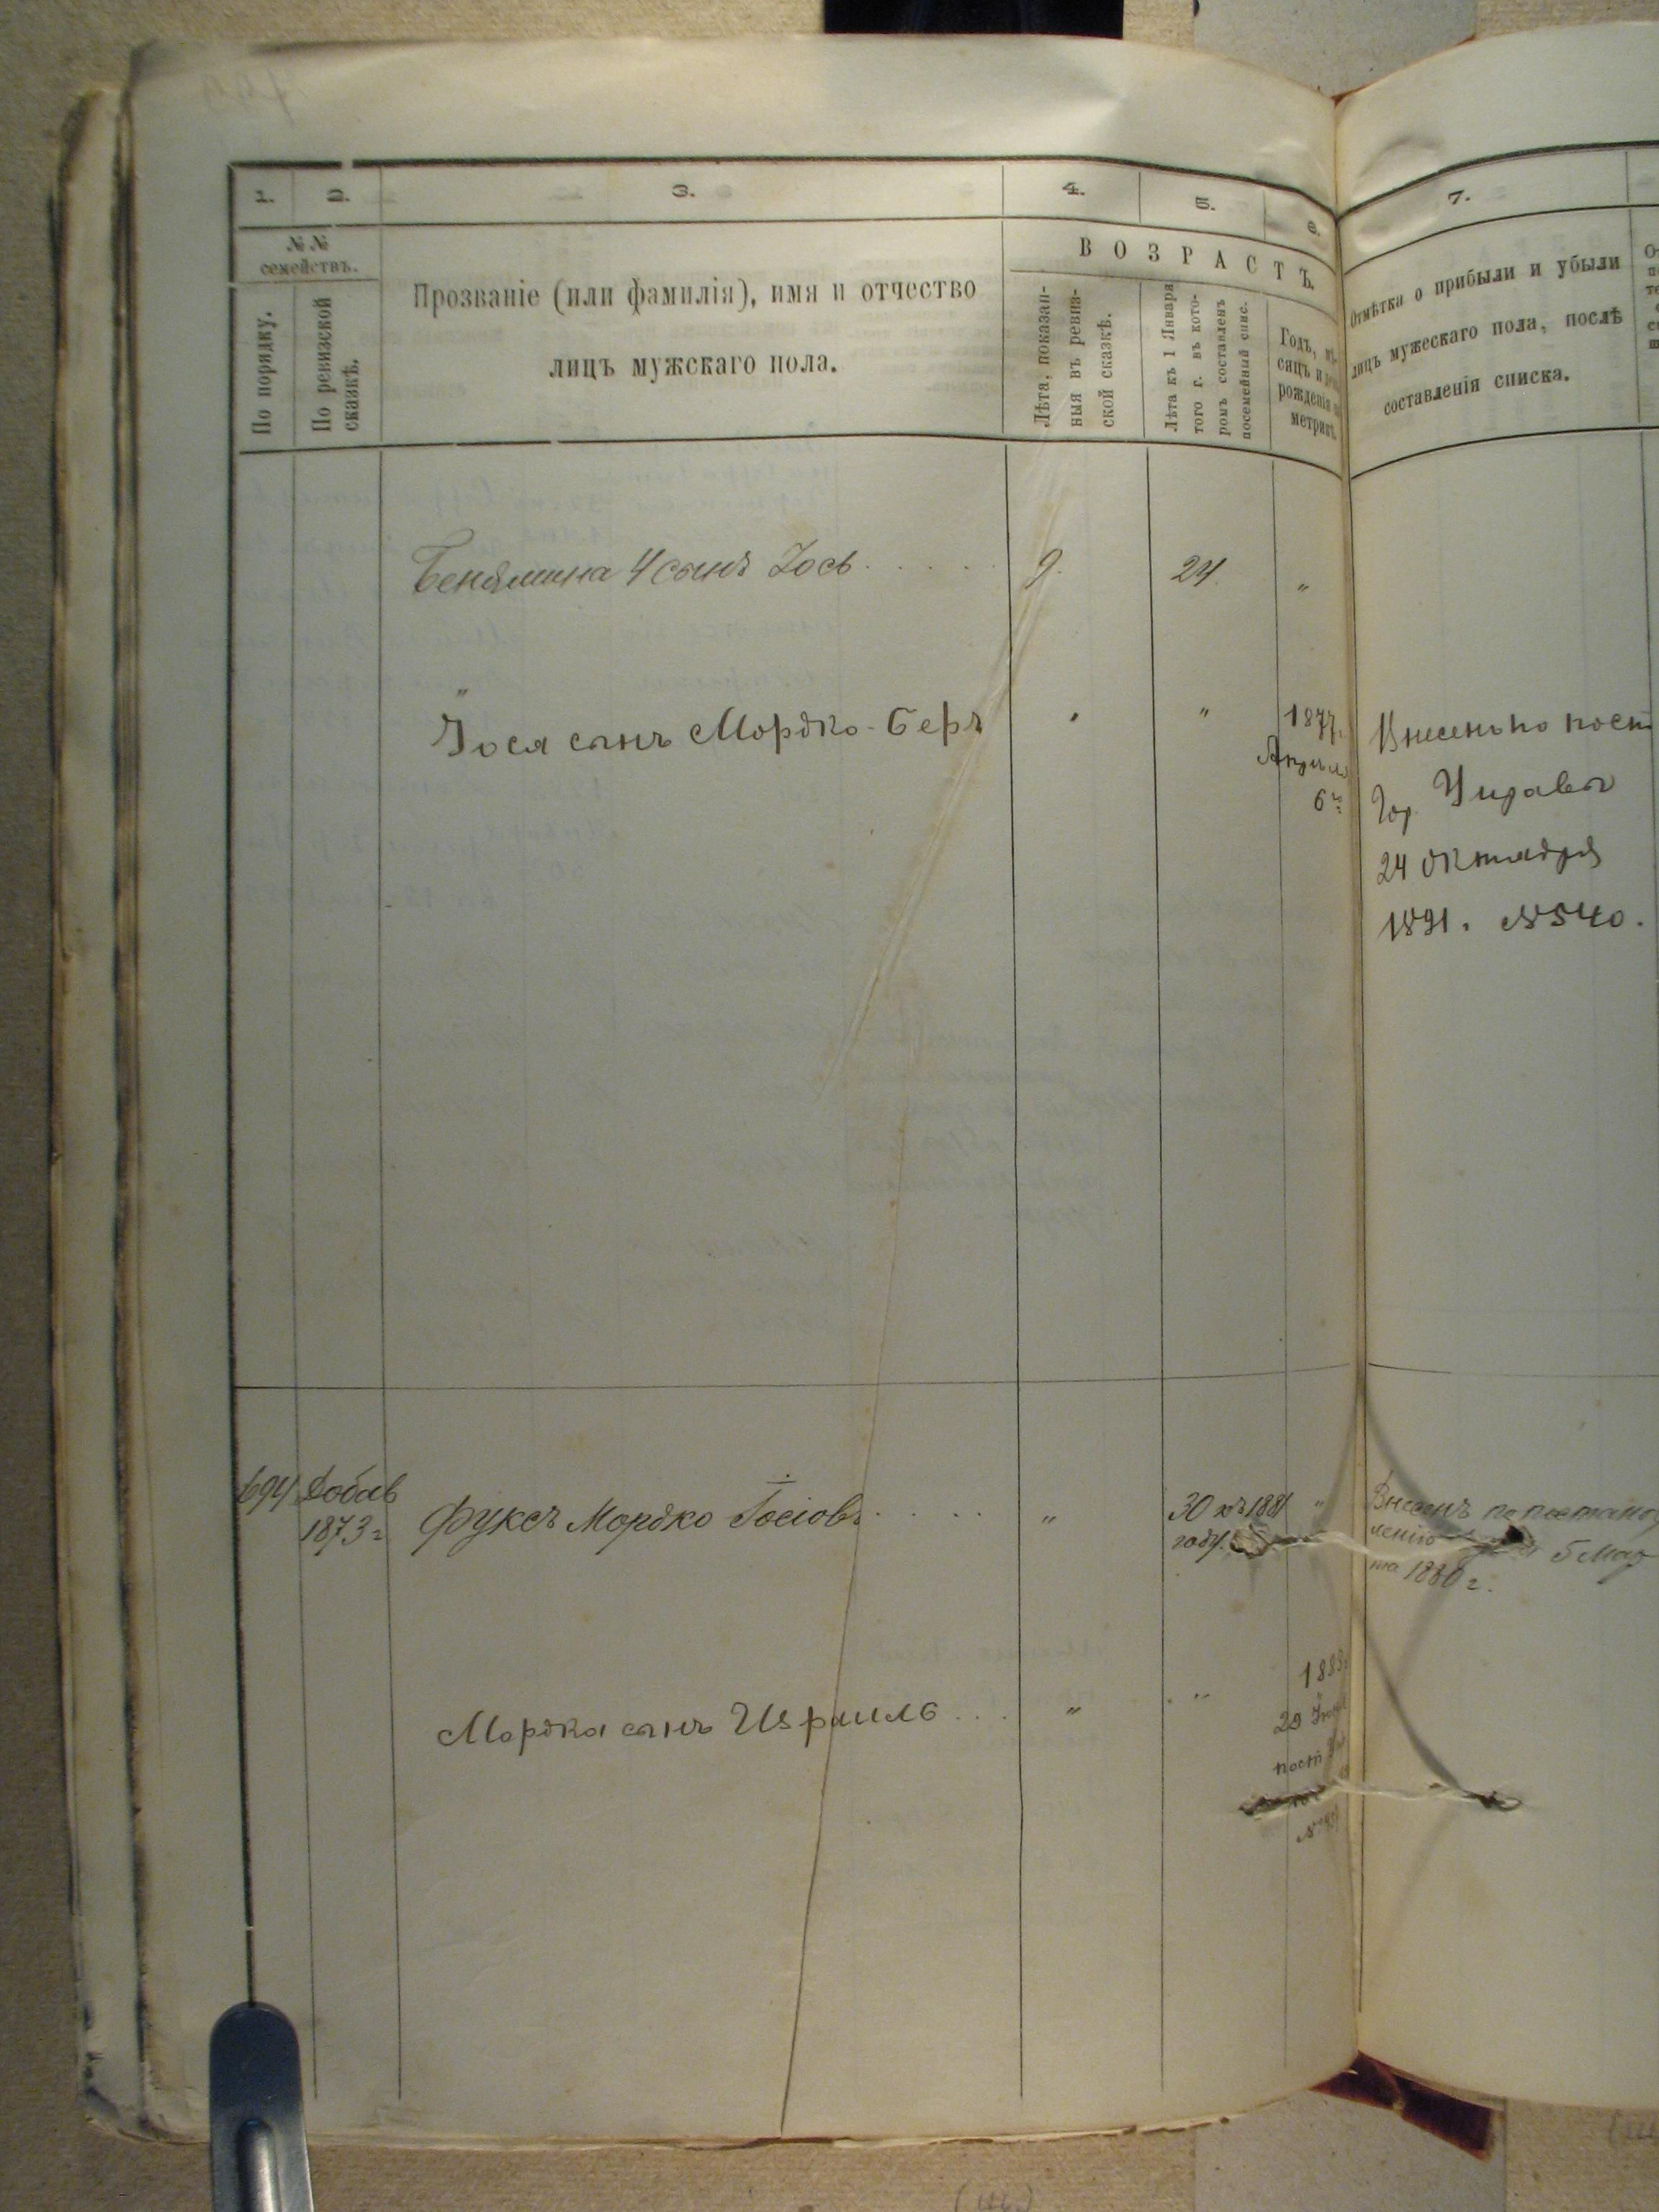 1. 2. 3. 4. 5. 6. 7.
№№ семействъ.
По порядку.
По ревизской сказкѣ.
Прозваніе (или фамилія), имя и отчество
лицъ мужскаго пола.
ВОЗРАСТЪ.
Лѣта, показан-
ныя въ ревиз-
ской сказкѣ.
Лѣта къ 1 Января
того г. въ кото-
ромъ составленъ
посемейный спис.
Годъ, мѣ-
сяцъ и
рожденія
метрик
Отмѣтка о прибыли и убыли
лицъ мужескаго пола, послѣ
составленія списка.
Беніямина 4 сынъ Іось . . . . . 9. 24. "
Іося сынъ Мордко-Беръ " " 1877 г.
Апрѣля
6
Внесенъ по пост
Гор. Управы
24 октября
1891. №540.
694 Добав
1873 г
Фуксъ Мордко Іосіовъ . . . . " 30 1881 "
году.
Внесенъ по постанов
лению 5 Мар
та 1880 г.
Мордка сынъ Израиль . . . " "
188
29
пост